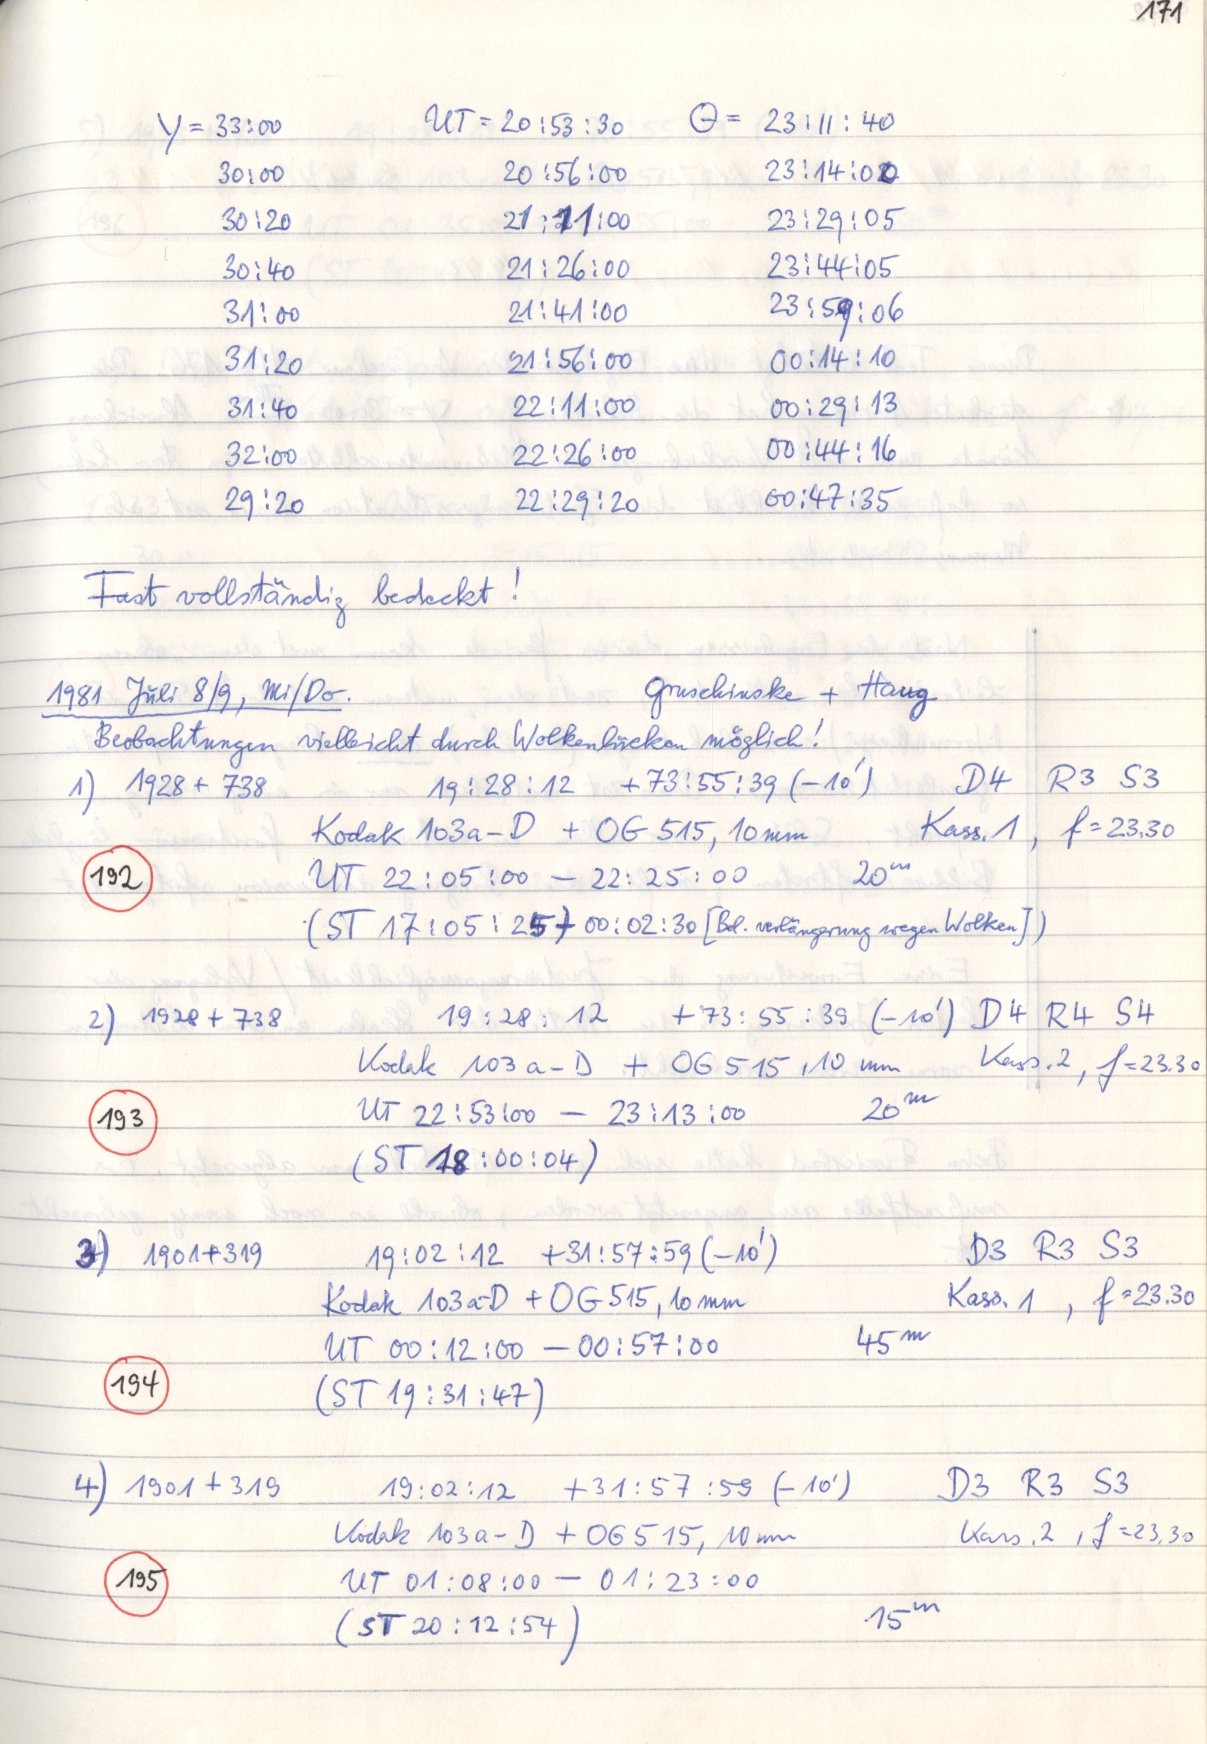 171
Y = 33:00 UT = 20:53:30 Θ = 23:11:40
30:00 20:56:00 23:14:00
30:20 21:11:00 23:29:05
30:40 21:26:00 23:44:05
31:00 21:41:00 23:59:06
31:20 21:56:00 00:14:10
31:40 22:11:00 00:29:13
32:00 22:26:00 00:44:16
29:20 22:29:20 00:47:35
Fast vollständig bedeckt!
1981 Juli 8/9, Mi/Do. Gruschinske + Haug
Beobachtungen vielleicht durch Wolkenlücken möglich!
1) 1928 + 738 19:28:12 +73:55:39 (-10') D4 R3 S3
Kodak 103a-D + OG 515, 10 mm Kass. 1, f = 23.30
192 UT 22:05:00 – 22:25:00 20ᵐ
(ST 17:05:25 + 00:02:30 [Bel. verlängerung wegen Wolken])
2) 1928 + 738 19:28:12 +73:55:39 (-10') D4 R4 S4
Kodak 103a-D + OG 515, 10 mm Kass. 2, f = 23.30
193 UT 22:53:00 – 23:13:00 20ᵐ
(ST 18:00:04)
3) 1901+319 19:02:12 +31:57:59 (-10') D3 R3 S3
Kodak 103a-D + OG 515, 10 mm Kass. 1, f = 23.30
UT 00:12:00 – 00:57:00 45ᵐ
194 (ST 19:31:47)
4) 1901 + 319 19:02:12 +31:57:59 (-10') D3 R3 S3
Kodak 103a-D + OG 515, 10 mm Kass. 2, f = 23,30
195 UT 01:08:00 – 01:23:00
(ST 20:12:54) 15ᵐ